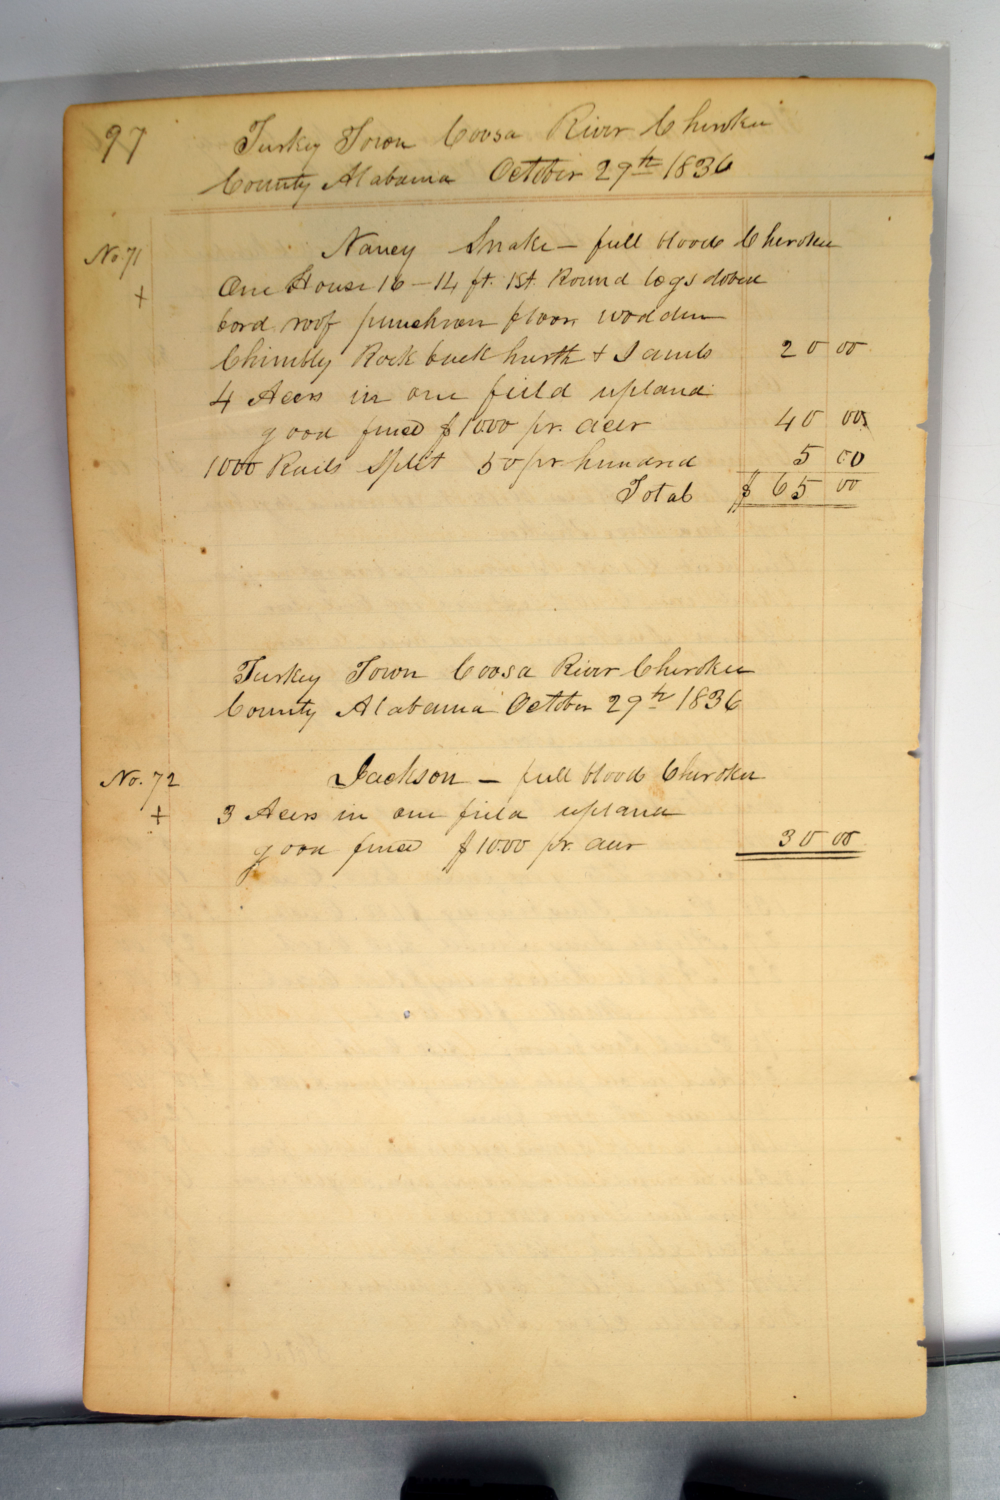 97
Turkey Town Coosa River Cherokee
County Alabama October 29th 1836
No 71 Nancy Snake – full blood Cherokee
+ One House 16 – 14 ft. 1st. Round logs dobed
bord roof punchron floor wodden
Chimbly Rock back hurth & Jambs 20 00
4 Acers in one field upland
good fince $1000 pr. acer 40 00
1000 Rails Split 50 pr hundred 5 00
Total $ 65 00
Turkey Town Coosa River Cherokee
County Alabama October 29th 1836
No. 72 Jackson – full blood Cherokee
+ 3 Acers in one field upland
good fince $1000 pr. acer 30 00